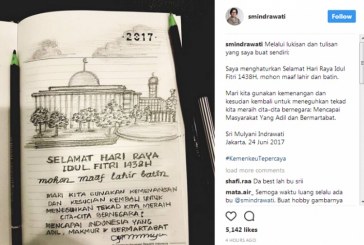 2017
SELAMAT HARI RAYA
IDUL FITRI 1438H
mohon maaf lahir batin
MARI KITA GUNAKAN KEMENANGAN
DAN KESUCIAN KEMBALI UNTUK
MENEGUHKAN TEKAD KITA MERAIH
CITA-CITA BERNEGARA:
MENCAPAI INDONESIA YANG
ADIL, MAKMUR & BERMARTABAT
smindrawati
Following
smindrawati Melalui lukisan dan tulisan
yang saya buat sendiri:
Saya menghaturkan Selamat Hari Raya Idul
Fitri 1438H, mohon maaf lahir dan batin.
Mari kita gunakan kemenangan dan
kesucian kembali untuk meneguhkan tekad
kita meraih cita-cita bernegara: Mencapai
Masyarakat Yang Adil dan Bermartabat.
Sri Mulyani Indrawati
Jakarta, 24 Juni 2017
#KemenkeuTepercaya
load more comments
shafi.raa Da best lah bu sri
mata.air_ Semoga waktu luang selalu ada
bu @smindrawati. Buat hobby gambarnya
5,142 likes
4 HOURS AGO